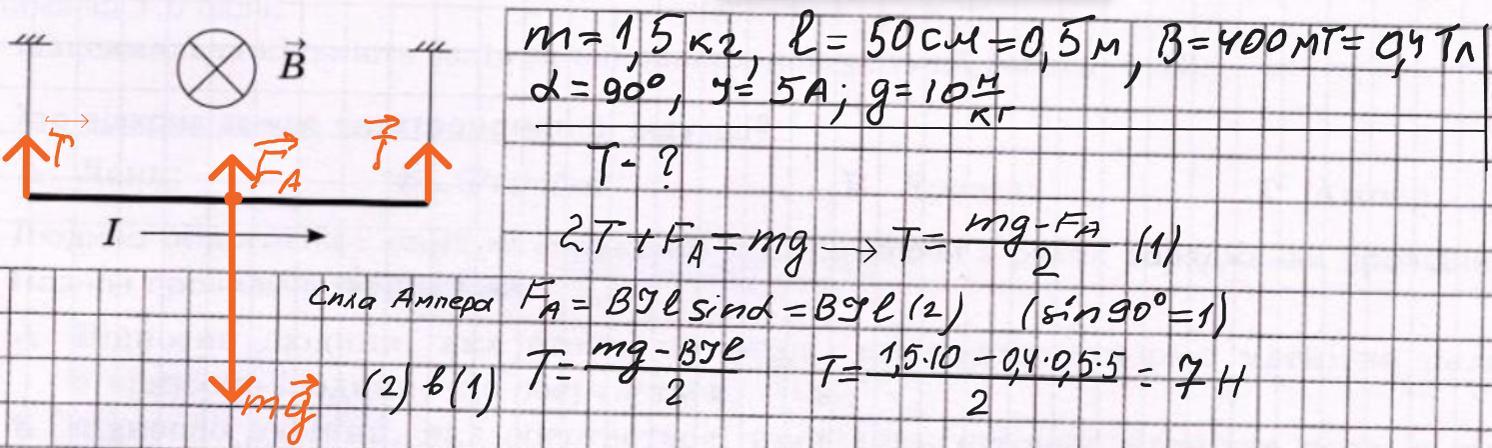 m=1,5 кг, l=50 см=0,5 м, B=400 мТ=0,4 Тл
α=90°, I=5A; g=10 Н/кг
T-?
B⃗
T⃗ F⃗A T⃗
I
mg⃗
2T+FA=mg → T=(mg-FA)/2 (1)
Сила Ампера FA=BIl sinα=BIl (2) (sin90°=1)
(2) в (1) T=(mg-BIl)/2 T=(1,5·10-0,4·0,5·5)/2=7 Н